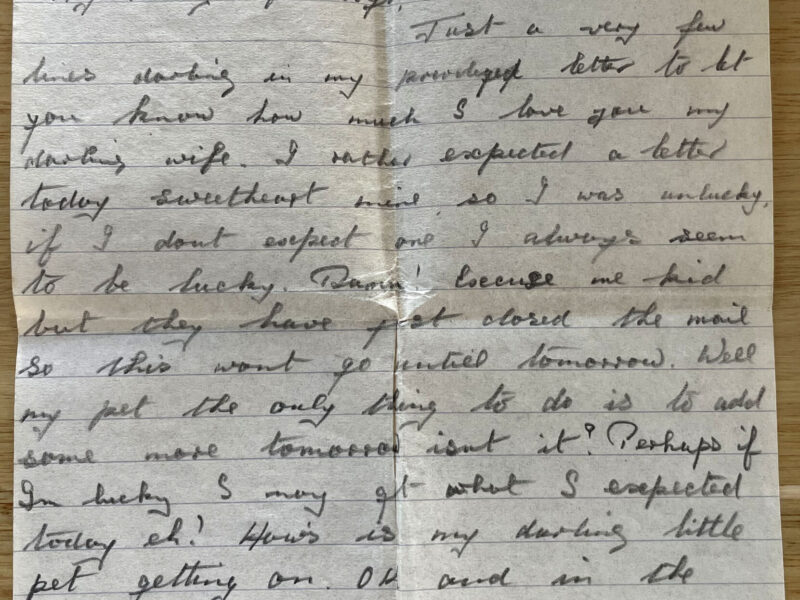 Just a very few
lines darling in my privileged letter to let
you know how much I love you my
darling wife. I rather expected a letter
today sweetheart mine, so I was unlucky,
if I dont expect one I always seem
to be lucky. Damn! Excuse me kid
but they have just closed the mail
so this wont go until tomorrow. Well
my pet the only thing to do is to add
some more tomorrow isnt it? Perhaps if
Im lucky I may get what I expected
today eh! How's is my darling little
pet getting on. OK and in the